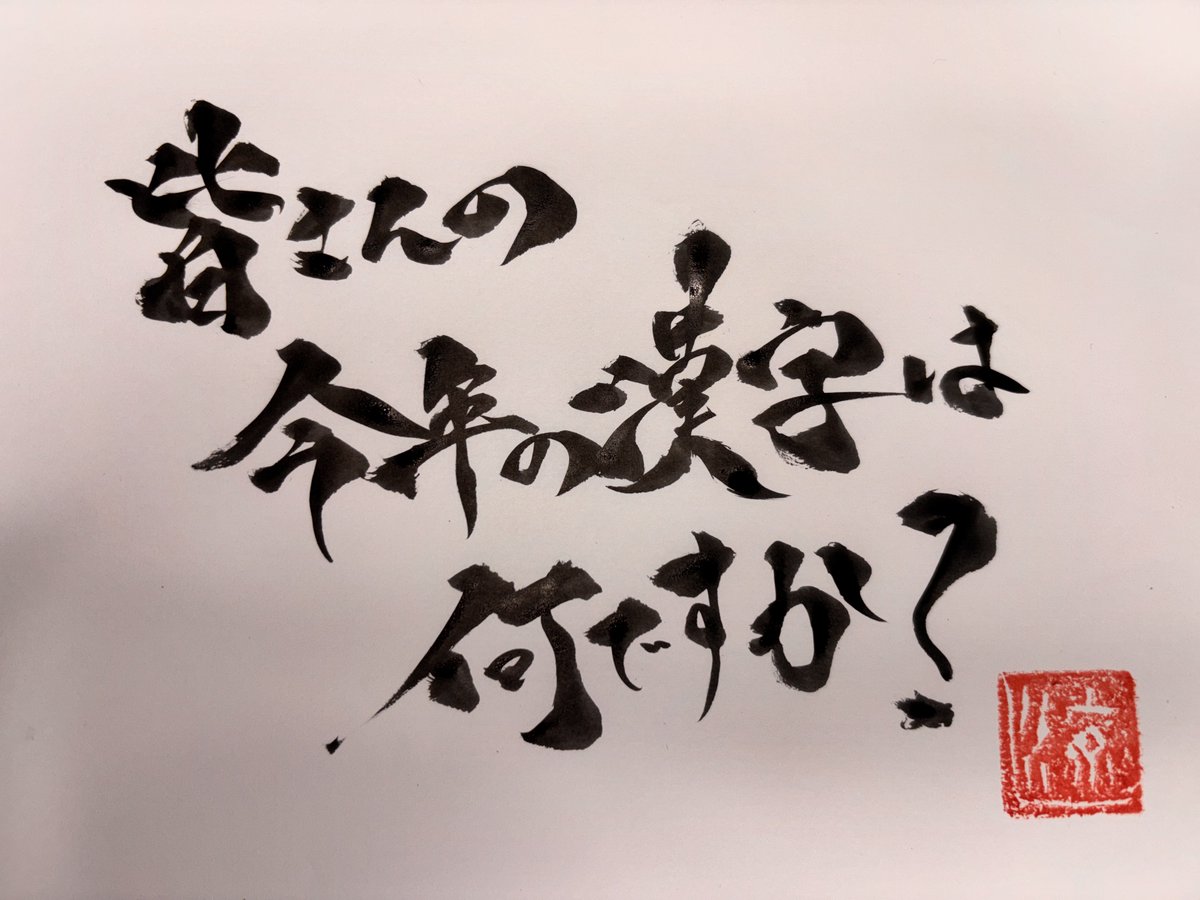 皆さんの
今年の漢字は
何ですか?